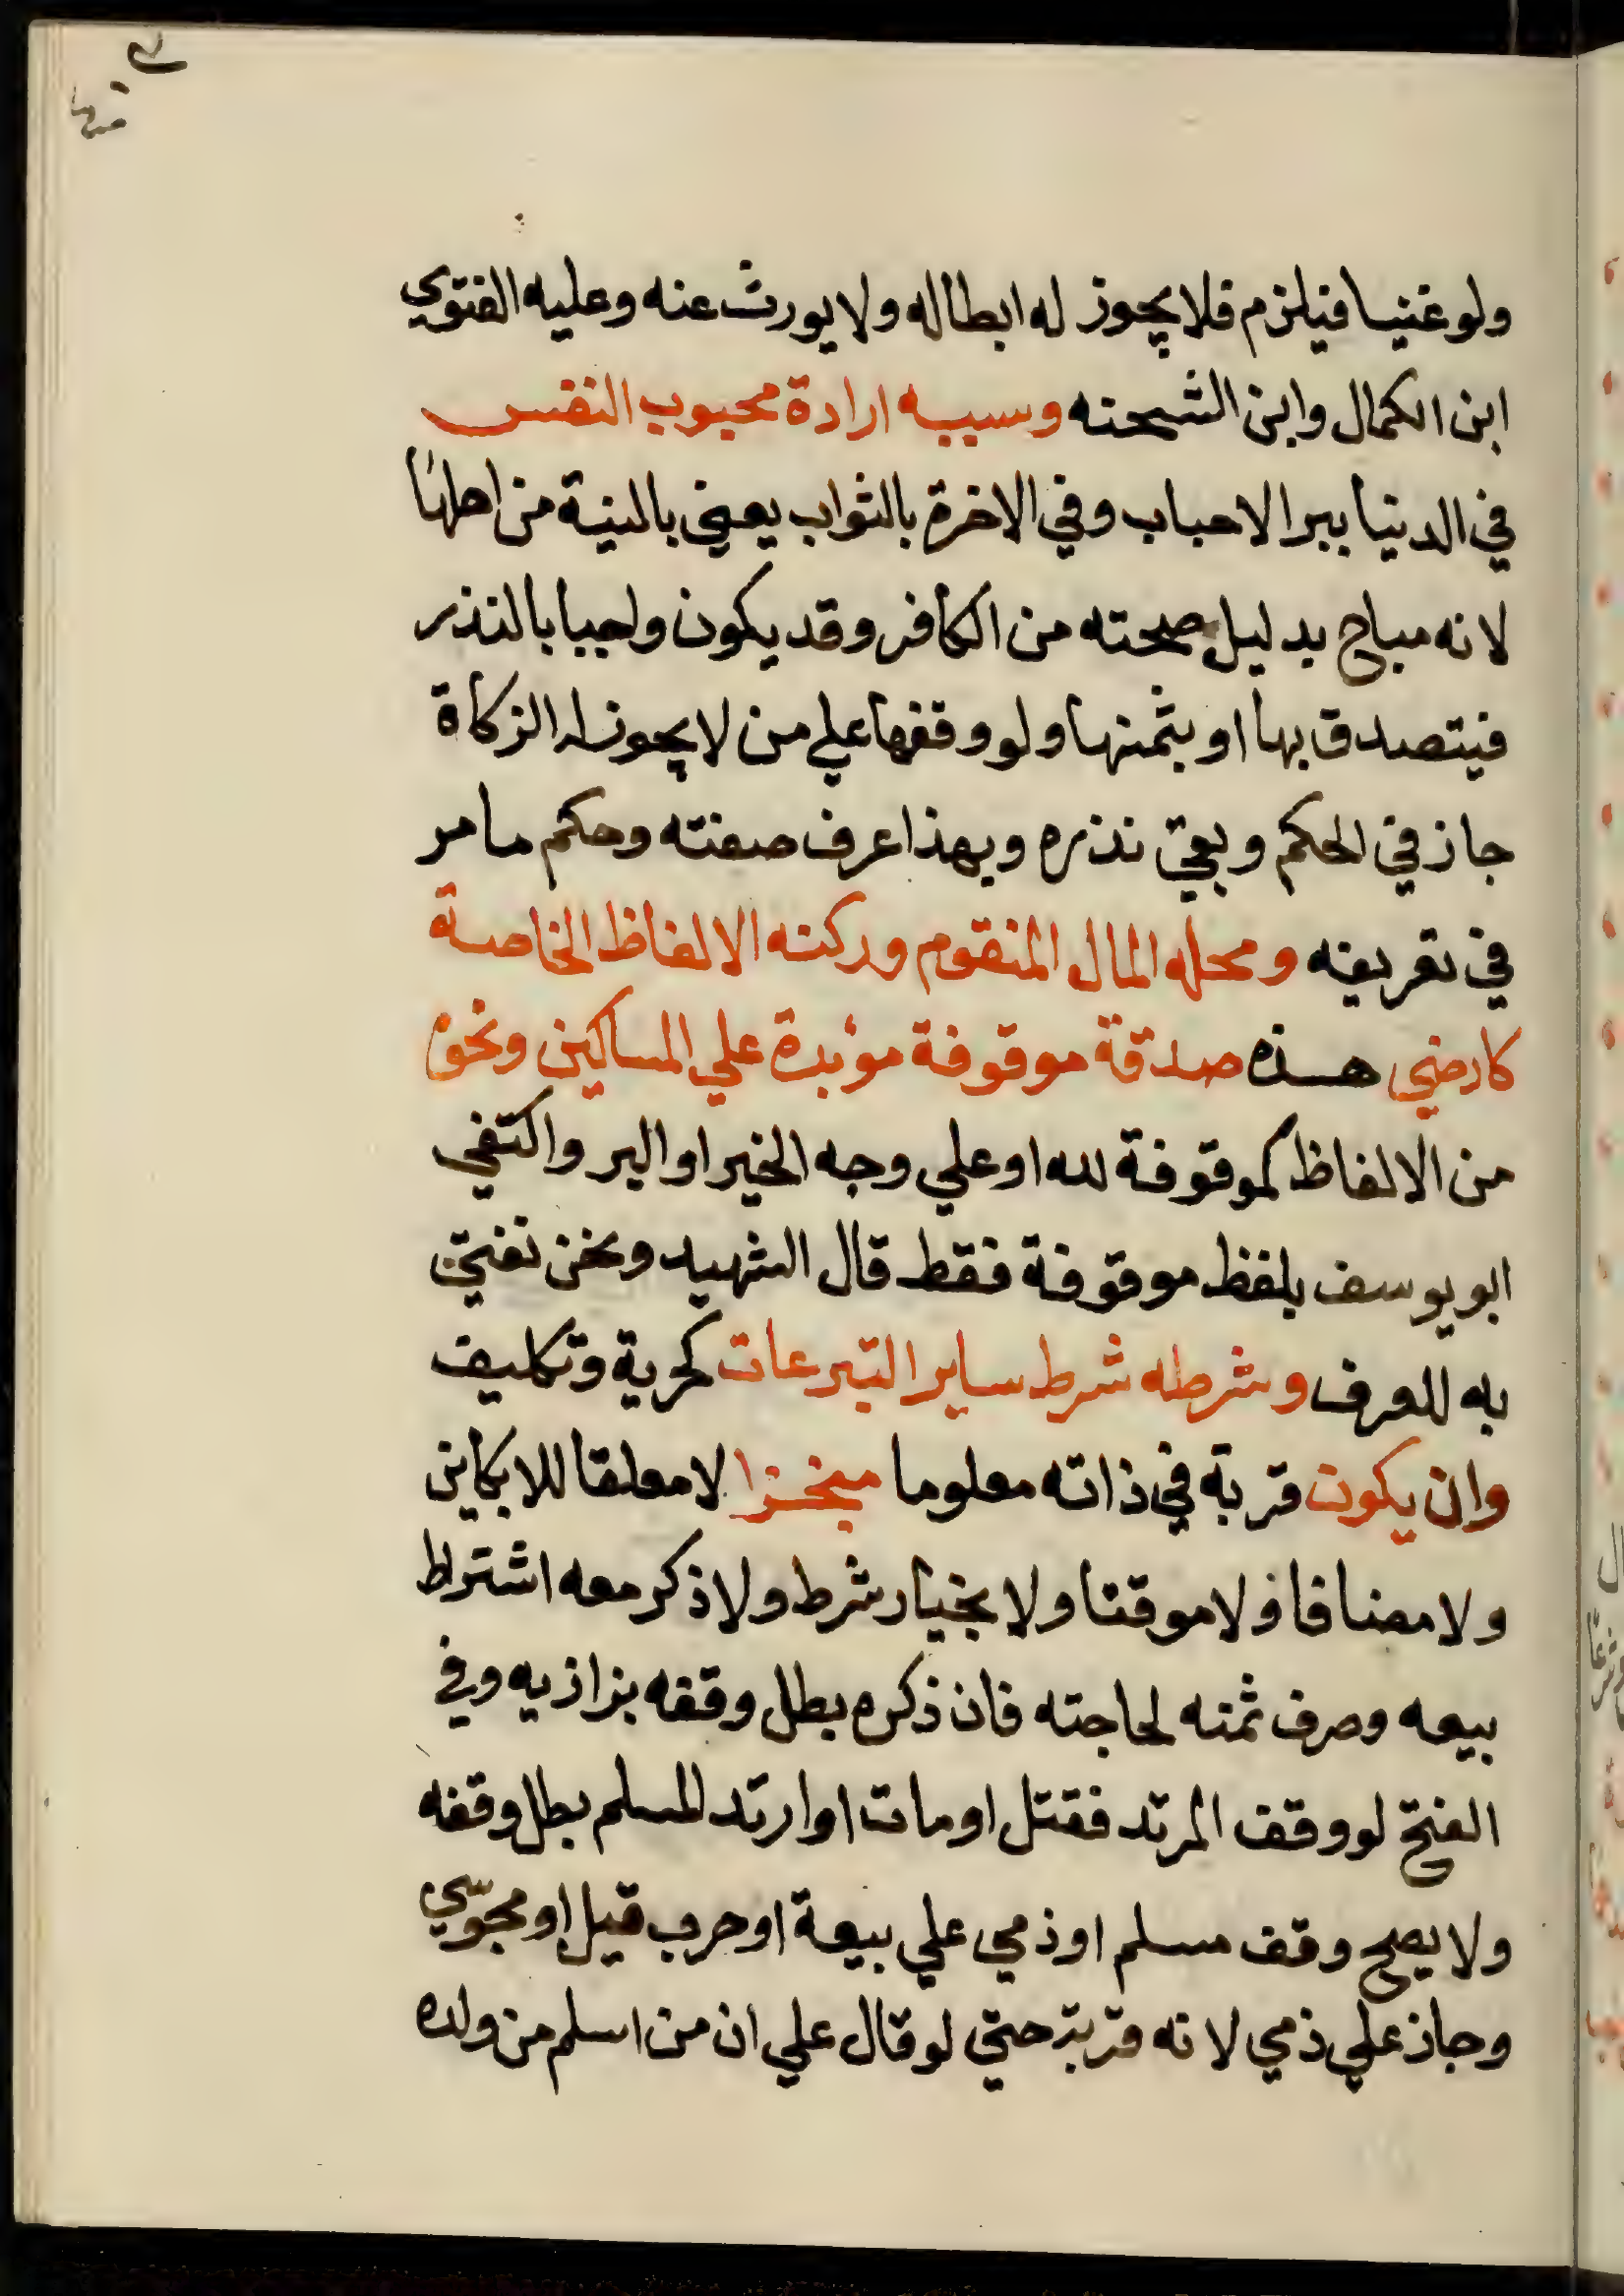 ولو غنيا فيلزم فلا يجوز له ابطاله ولا يورث عنه وعليه الفتوي
ابن الكمال وابن الشحنه وسببه ارادة محبوب النفس
في الدنيا ببر الاحباب وفي الاخرة بالثواب يعني بالنية من اهلها
لانه مباح بدليل صحته من الكافر وقد يكون واجبا بالنذر
فيتصدق بها او بثمنها ولو وقفها علي من لا يجوز له الزكاة
جاز في الحكم وبقي نذره وبهذا عرف صفته وحكم ما مر
في تعريفه ومحله المال المتقوم وركنه الالفاظ الخاصة
كارضي هذه صدقة موقوفة مؤبدة علي المساكين ونحوه
من الالفاظ كموقوفة لله او علي وجه الخير او البر واكتفي
ابو يوسف بلفظ موقوفة فقط قال الشهيد ونحن نفتي
به للعرف وشرطه شرط ساير التبرعات كحرية وتكليف
وان يكون قربة في ذاته معلوما منجزا لا معلقا للابكاين
ولا مضافا ولا موقتا ولا بخيار شرط ولا ذكر معه اشتراط
بيعه وصرف ثمنه لحاجته فان ذكره بطل وقفه بزازيه وفي
الفتح لو وقف المرتد فقتل او مات او ارتد المسلم بطل وقفه
ولا يصح وقف مسلم او ذمي علي بيعة او حرب قيل او مجوسي
وجاز علي ذمي لانه قربة حتي لو قال علي ان من اسلم من ولده